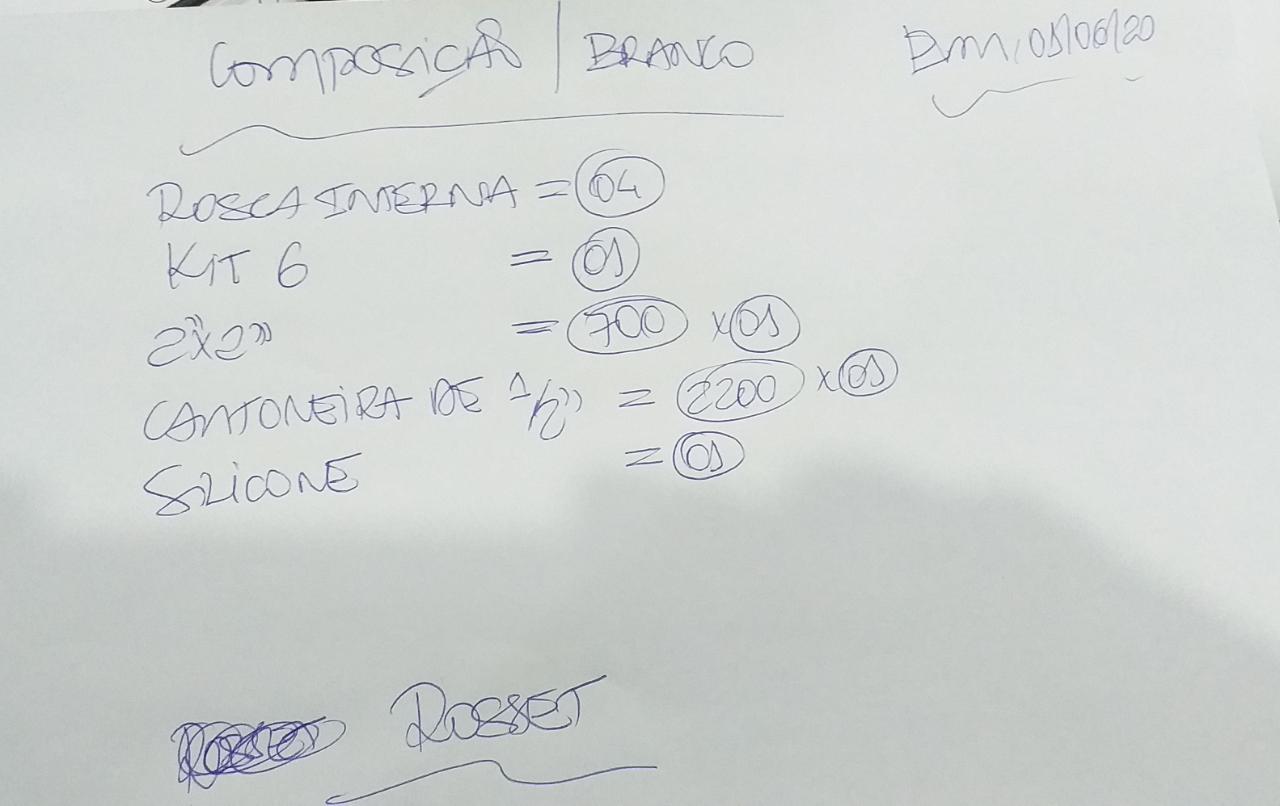 COMPOSIÇÃO / BRANCO Em, 01/06/20
ROSCA INTERNA = 04
KIT 6 = 01
2"x2" = 700 x 01
CANTONEIRA DE 1/2" = 2200 x 01
SILICONE = 01
ROSSET